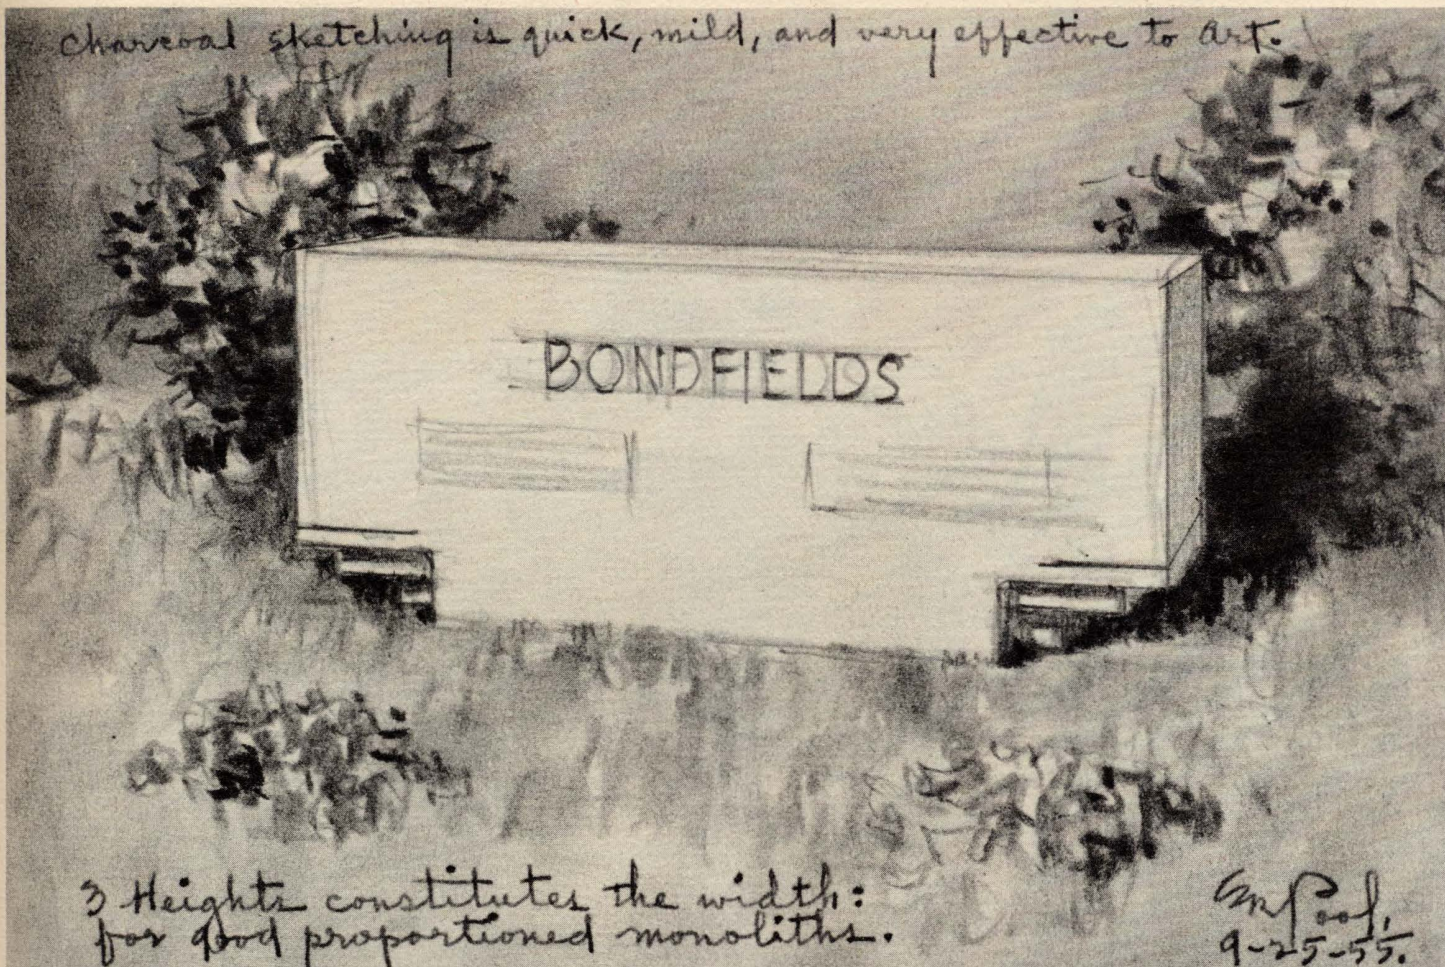 Charcoal sketching is quick, mild, and very effective to Art.
BONDFIELDS
3 Heights constitutes the width:
for good proportioned monoliths.
9-25-55.